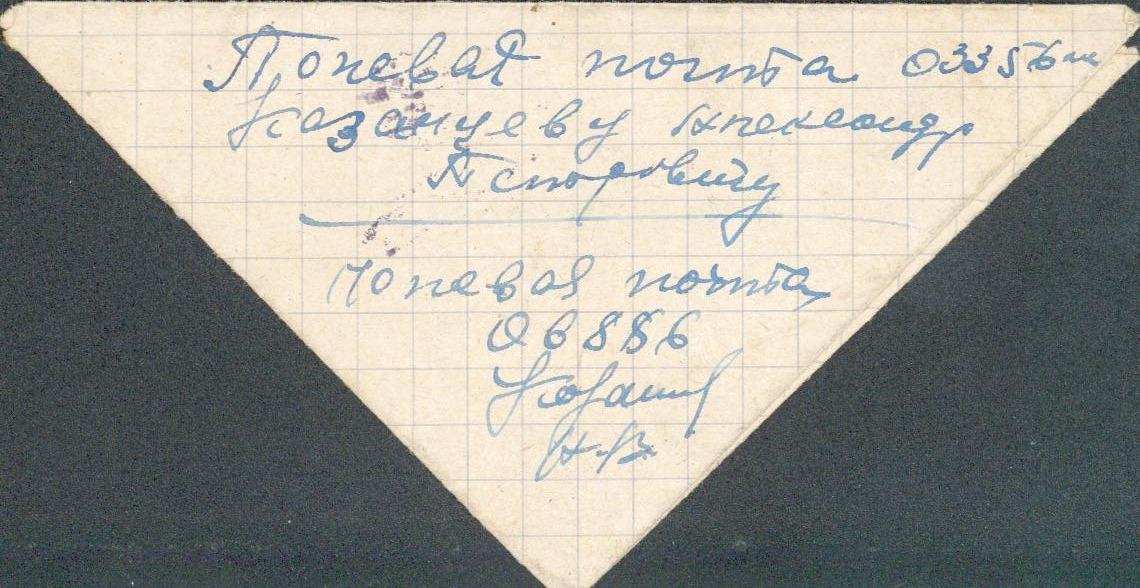 Полевая почта 03356
Казанцеву Александр
Петровичу
Полевая почта
06886